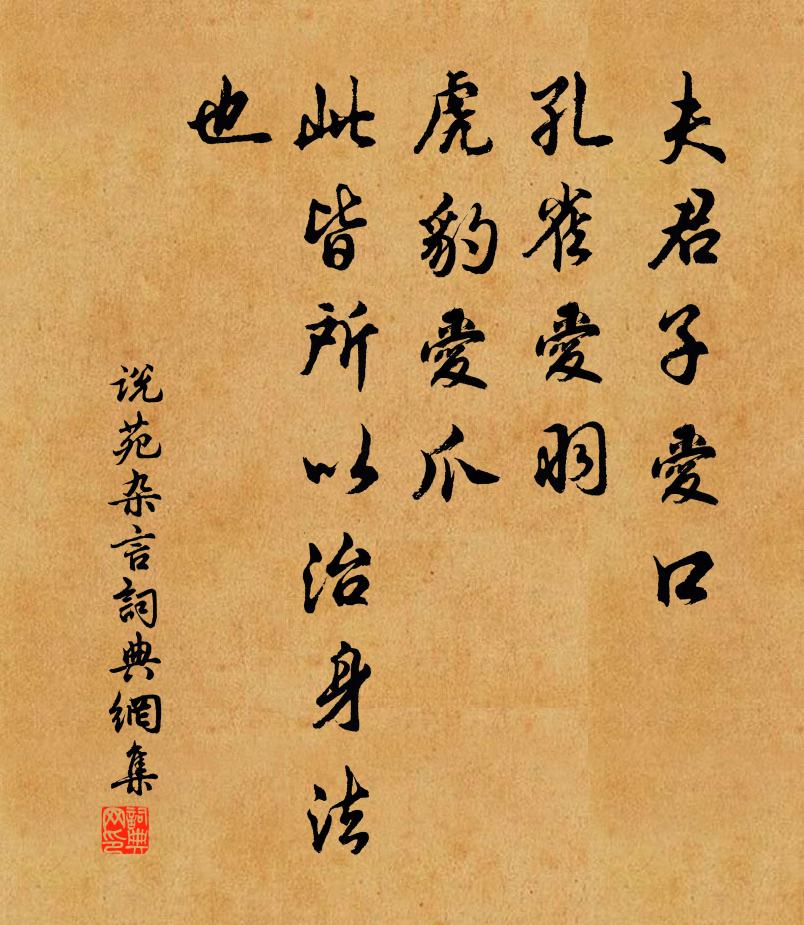 夫君子愛口
孔雀愛羽
虎豹愛爪
此皆所以治身法
也
说苑杂言詞典網集
詞典网印